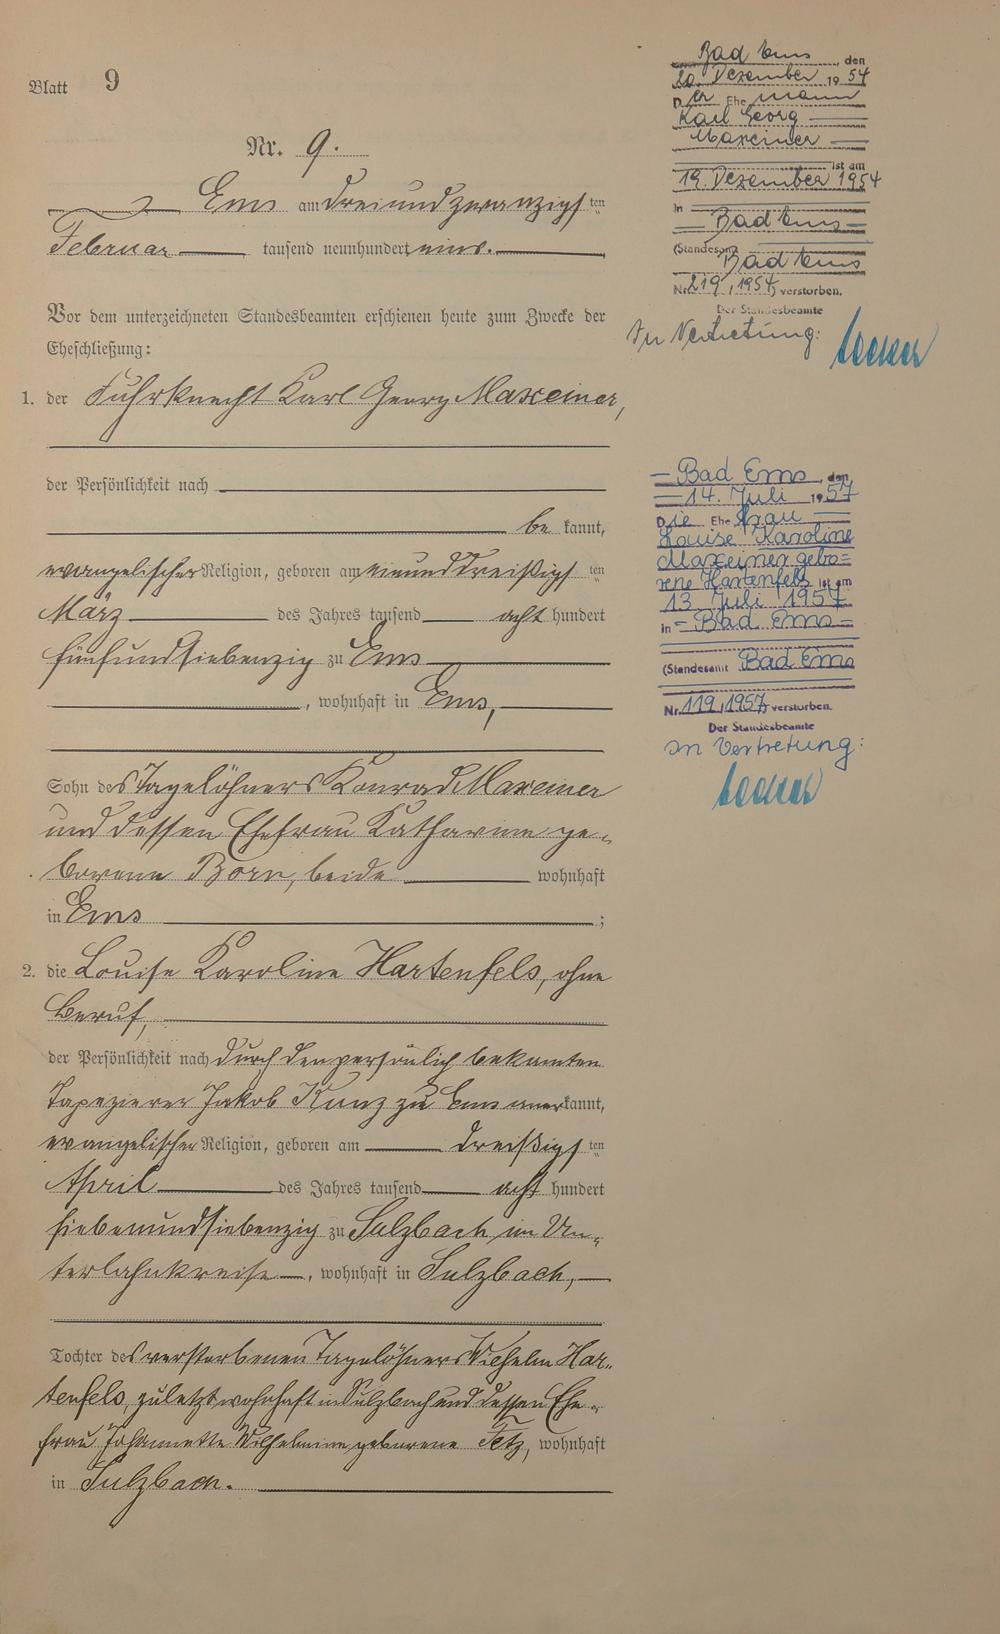 Blatt 9
Nr. 9.
Ems am dreiundzwanzigsten
Februar tausend neunhundert eins.
Vor dem unterzeichneten Standesbeamten erschienen heute zum Zwecke der
Eheschließung:
1. der Fuhrknecht Karl Georg Maxeiner,
der Persönlichkeit nach
be kannt,
evangelischer Religion, geboren am einunddreißigsten
März des Jahres tausend acht hundert
fünfundsiebenzig zu Ems
, wohnhaft in Ems,
Sohn des Tagelöhners Konrad Maxeiner
und dessen Ehefrau Katharine ge-
borene Born, beide wohnhaft
in Ems ;
2. die Louise Karoline Hartenfels, ohne
Beruf,
der Persönlichkeit nach durch den persönlich bekannten
Tapezierer Jakob Kunz zu Ems aner kannt,
evangelischer Religion, geboren am dreißigsten
April des Jahres tausend acht hundert
siebenundsiebenzig zu Sulzbach im Un-
terlahnkreise , wohnhaft in Sulzbach,
Tochter des verstorbenen Tagelöhners Wilhelm Har-
tenfels, zuletzt wohnhaft in Sulzbach und dessen Ehe-
frau Johannette Wilhelmine geborene Fetz, wohnhaft
in Sulzbach.
Bad Ems, den
20. Dezember 1954
Der Ehemann
Karl Georg
Maxeiner
ist am
19. Dezember 1954
in
Bad Ems
(Standesamt
Bad Ems
Nr. 219, 1954, verstorben.
Der Standesbeamte
In Vertretung:
Bad Ems, den
14. Juli 1957
Die Ehefrau
Louise Karoline
Maxeiner gebo=
rene Hartenfels ist am
13. Juli 1957
in Bad Ems
(Standesamt Bad Ems
Nr. 119, 1957, verstorben.
Der Standesbeamte
In Vertretung: